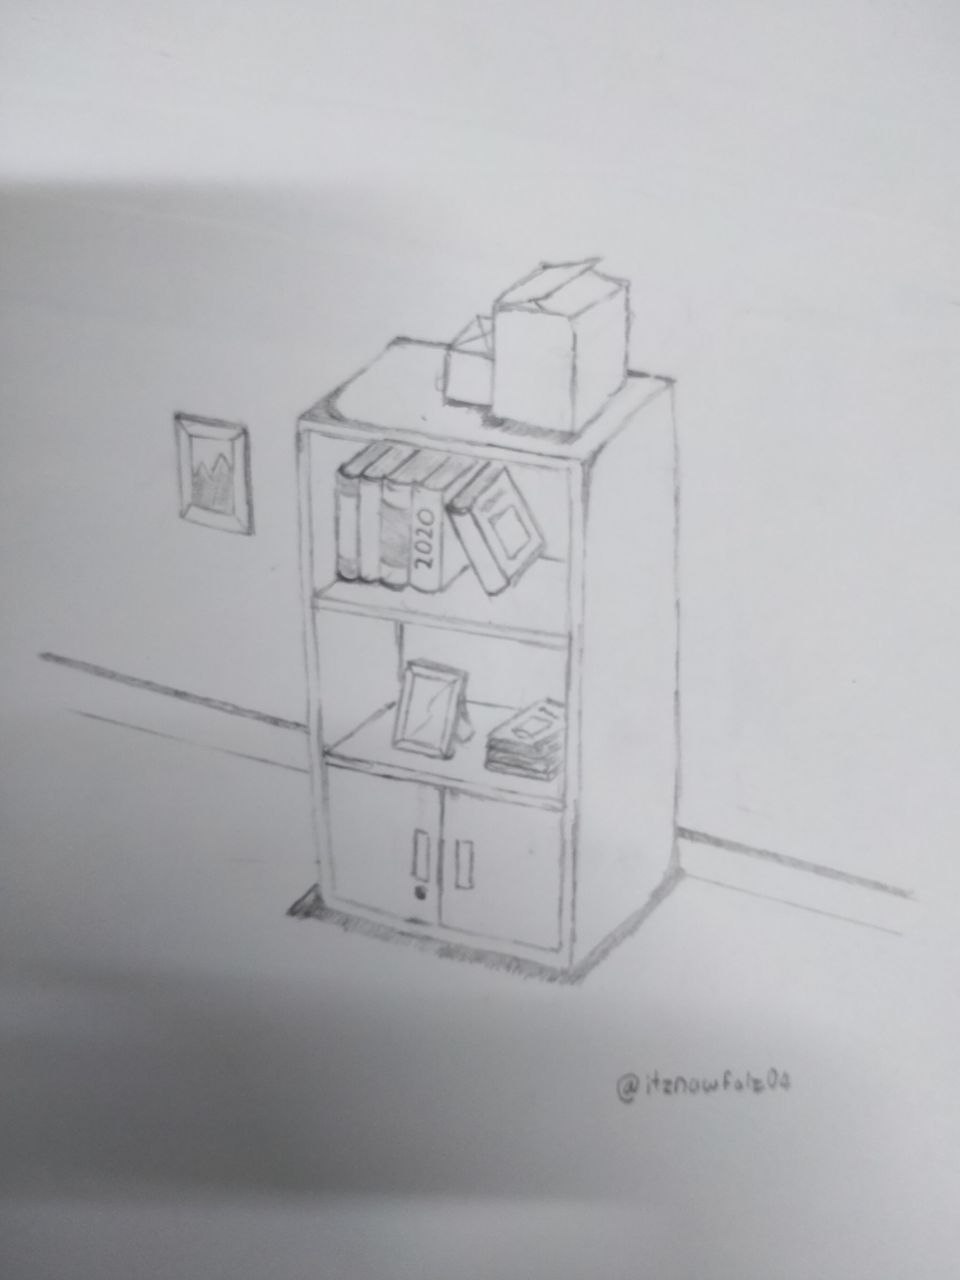 2020
@itznawfalz04